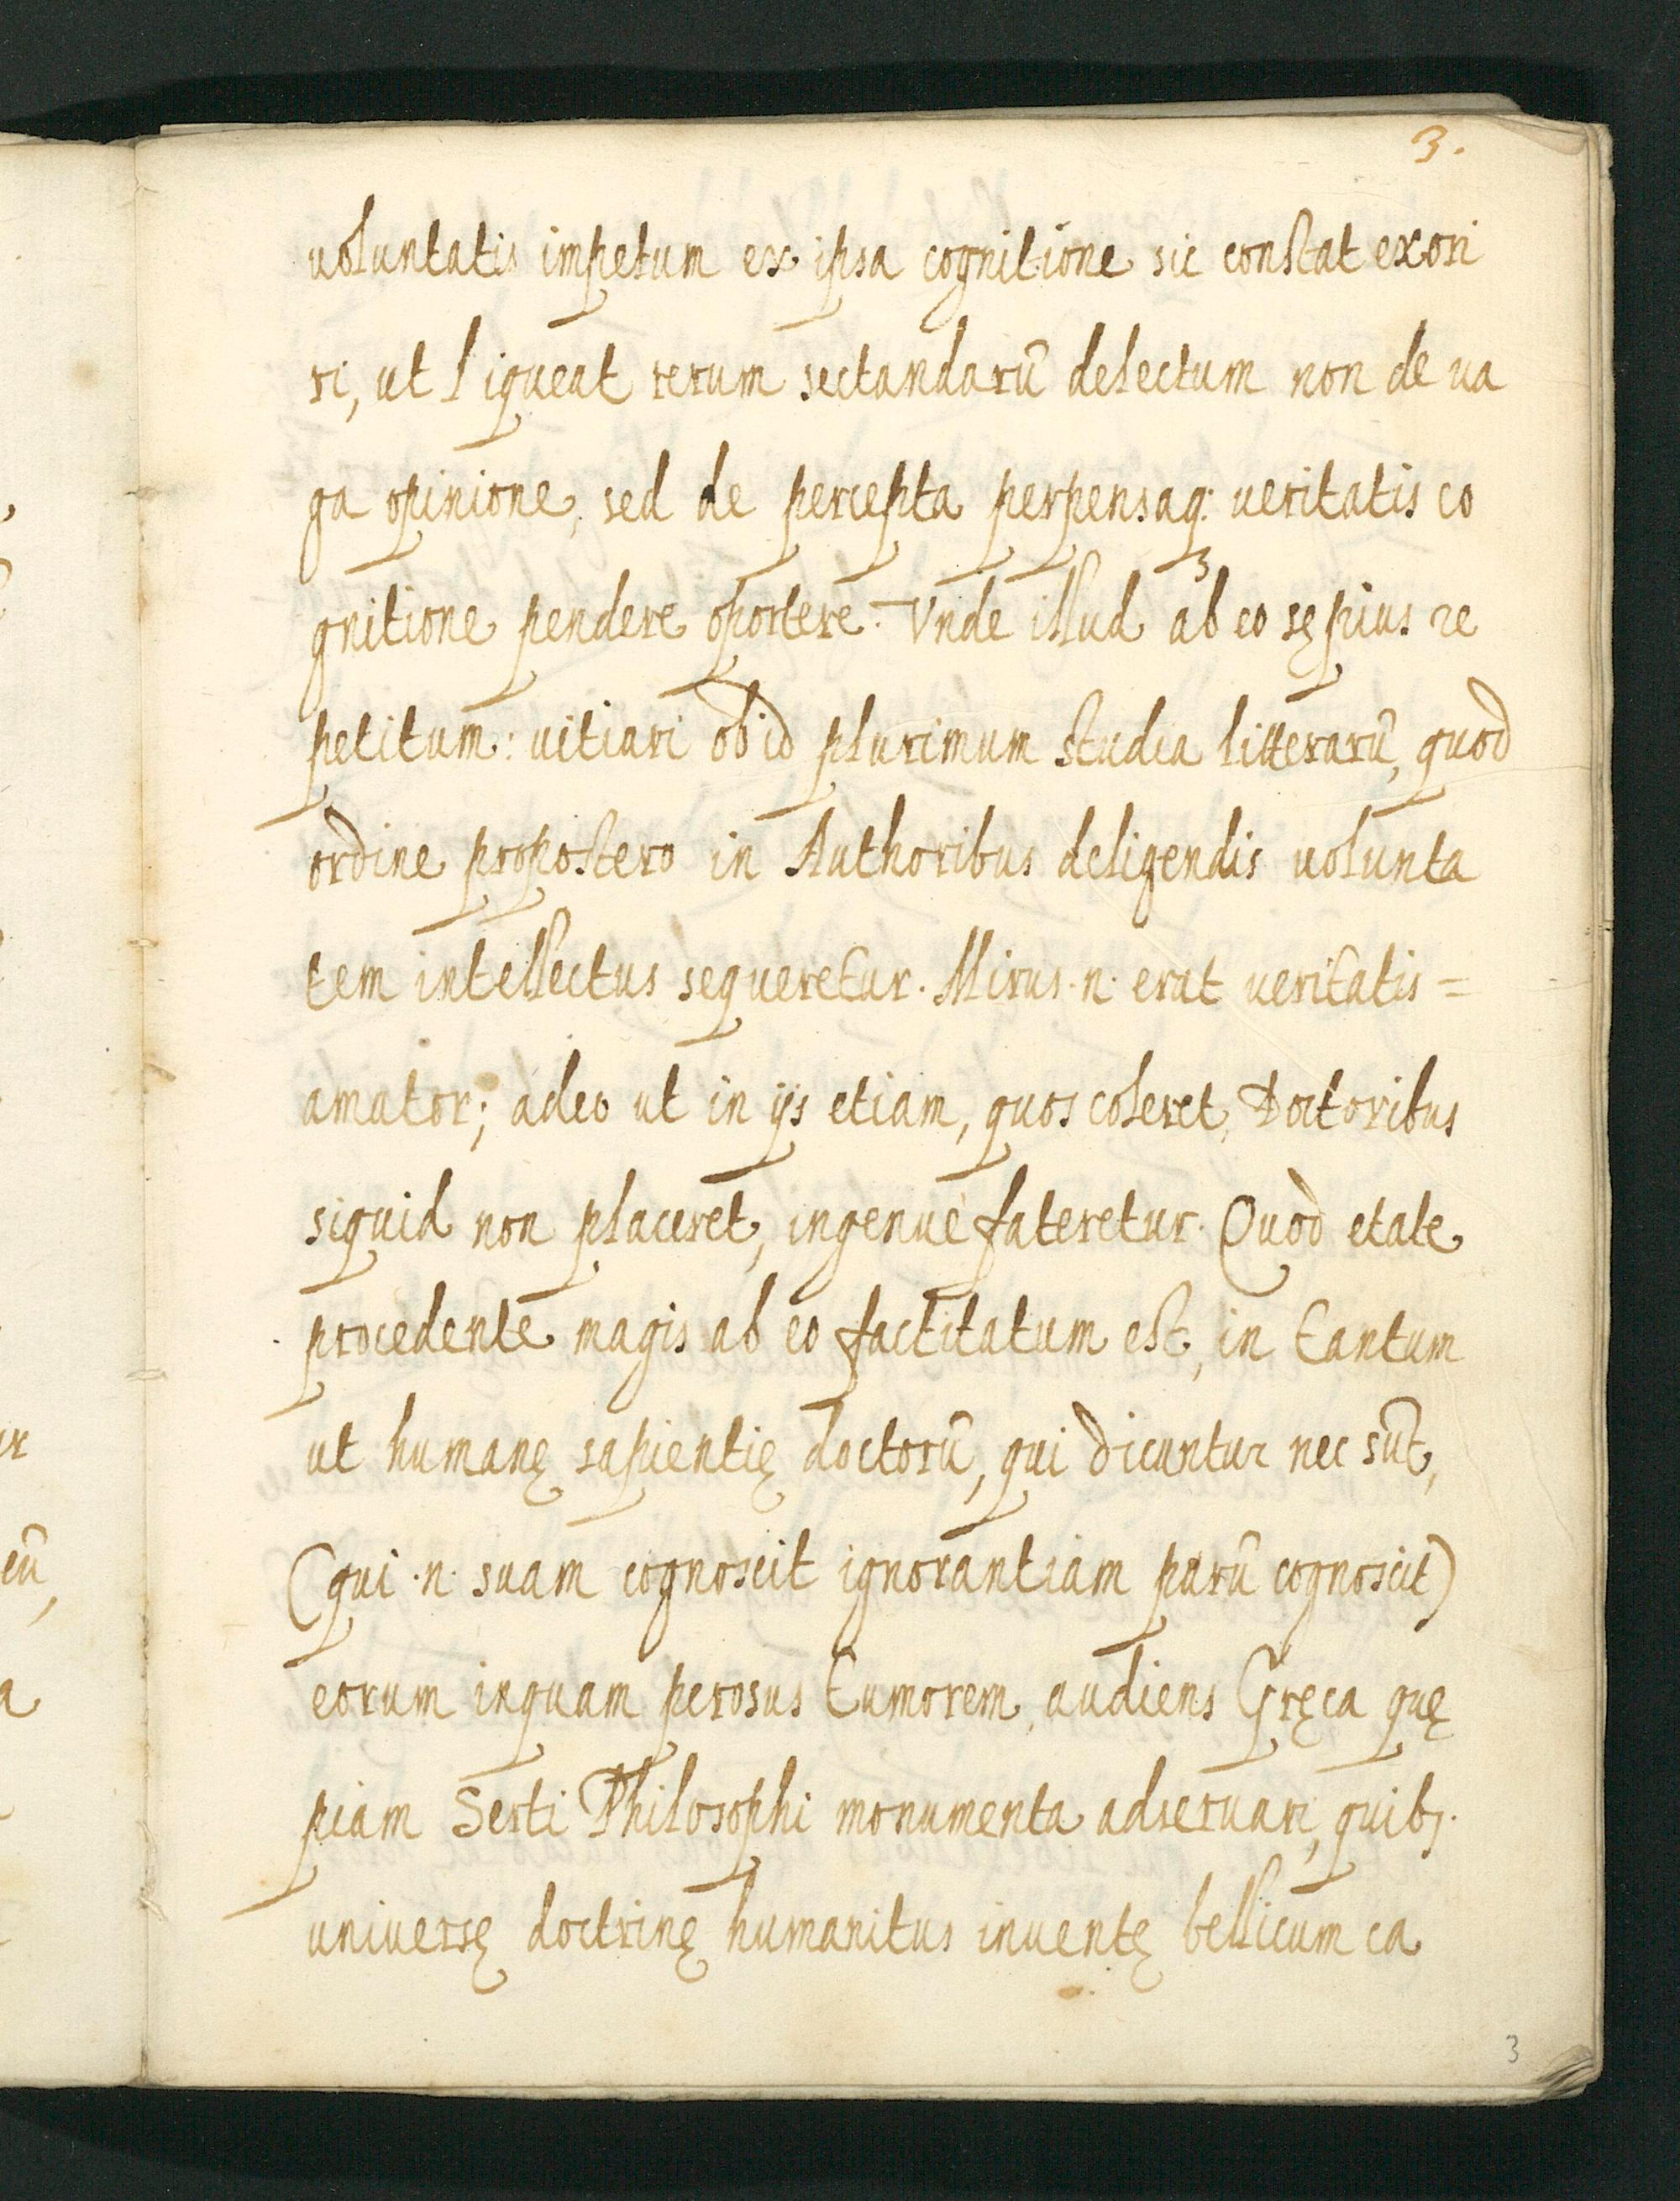 3.
uoluntatis impetum ex ipsa cognitione sic constat exori
ri, ut liqueat rerum sectandarũ delectum non de ua
ga opinione, sed de percepta perpensaq: ueritatis co
gnitione pendere oportere. Vnde illud ab eo sępius re
petitum: uitiari ob id plurimum studia litterarũ, quod
ordine propostero in Authoribus deligendis uolunta
tem intellectus sequeretur. Mirus .n. erat ueritatis =
amator; adeo ut in ijs etiam, quos coleret, Doctoribus
siquid non placeret, ingenuè fateretur. Quod etate
procedente magis ab eo factitatum est, in tantum
ut humanę sapientię doctorũ, qui dicuntur nec sũt,
(qui .n. suam cognoscit ignorantiam parũ cognoscit)
eorum inquam perosus tumorem, audiens Gręca quę
piam Sexti Philosophi monumenta adseruari, quibꝫ.
uniuersę doctrinę humanitus inuentę bellicum ca
3